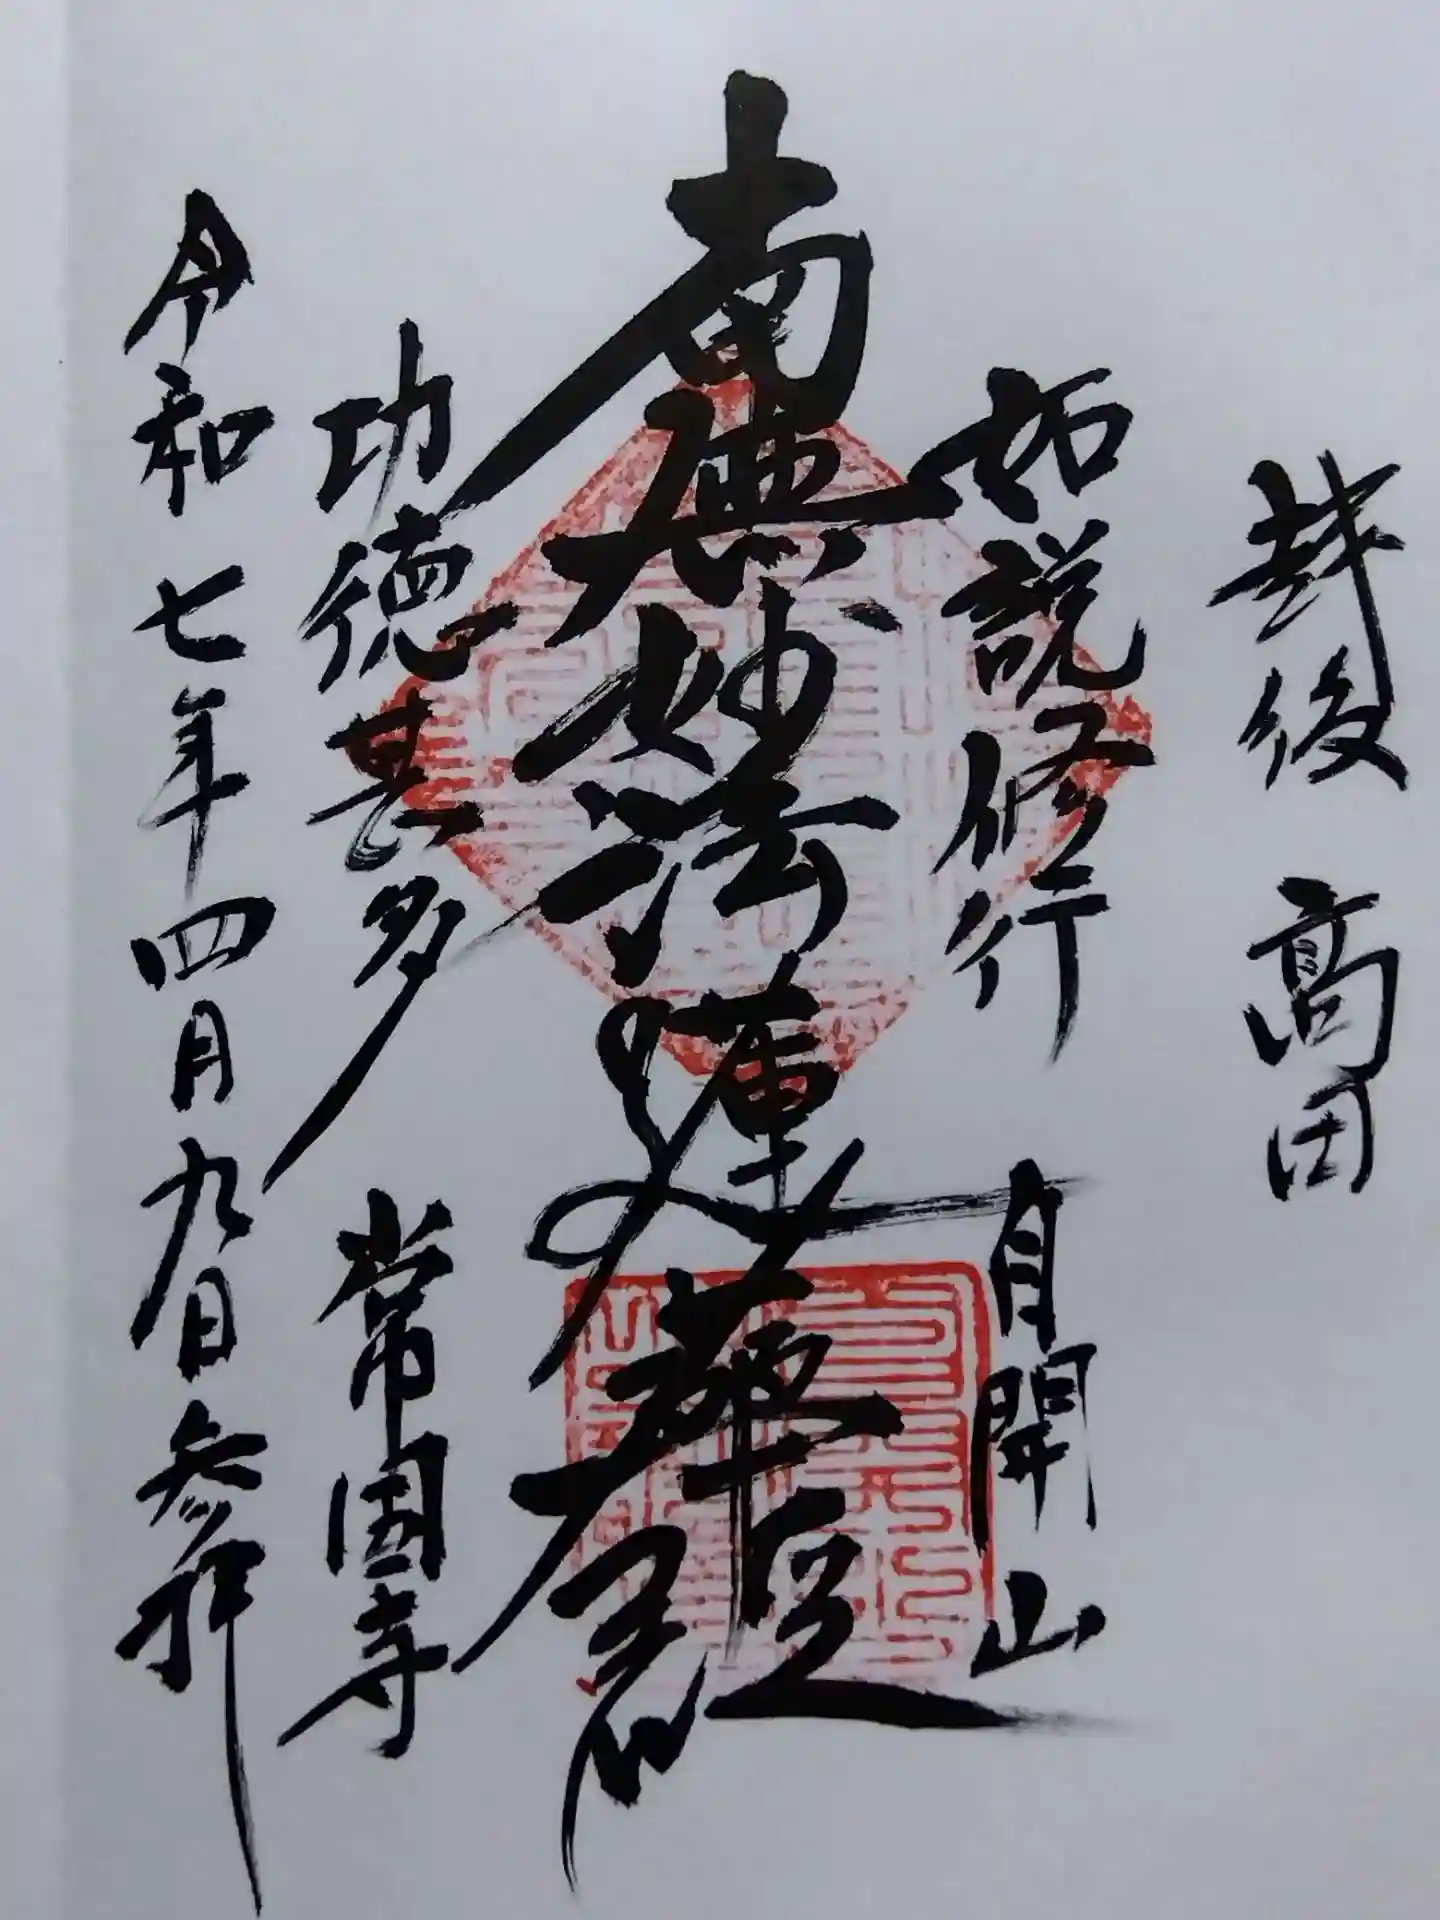 越後 高田
如説修行 自開山
南無妙法蓮華経
功徳甚多 常国寺
令和七年四月九日参拝